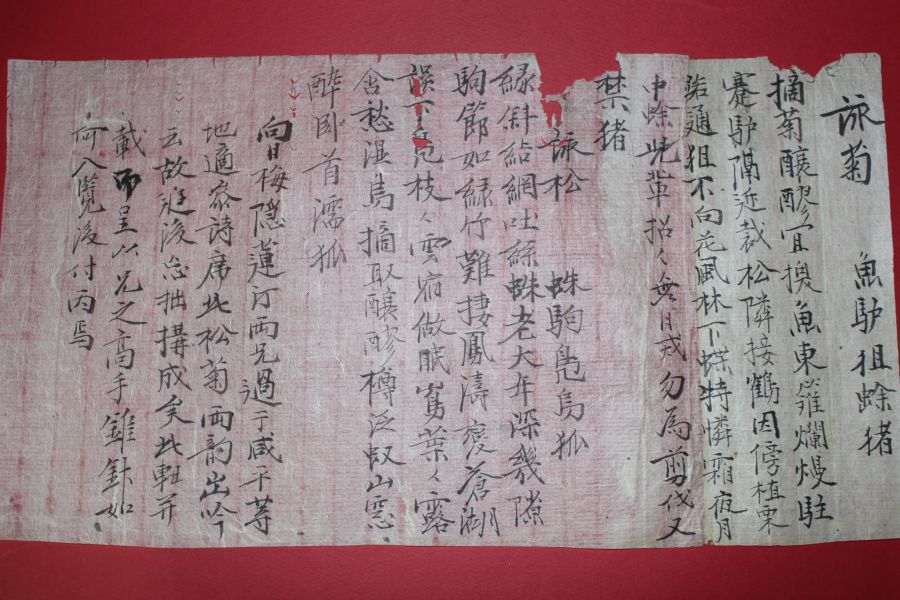 詠菊 魚驴狙蜍猪
摘菊釀醪宜換魚東籬爛熳駐
蹇驴隔近裁松隣接鶴因傍植栗
能通狙不向花風林下蝶特憐霜夜月
中蜍此輩招々無日戎勿為剪伐又
禁猪
詠松 蛛駒鳧烏狐
綠斜結網吐絲蛛老大年深幾隙
駒節如綠竹難捿鳳濤襍蒼湖
誤下鳧枝々雲宿做眠寯葉々露
含愁湿烏摘取釀醪樽泛蚁山窓
醉卧首濡狐
向日梅隠蓮汀両兄過于咸平等
地適參詩席北松菊両韵出吟
云故避後忘拙搆成矣此軸并
載而呈必兄之高手錐鈇如
何入覧後付丙焉